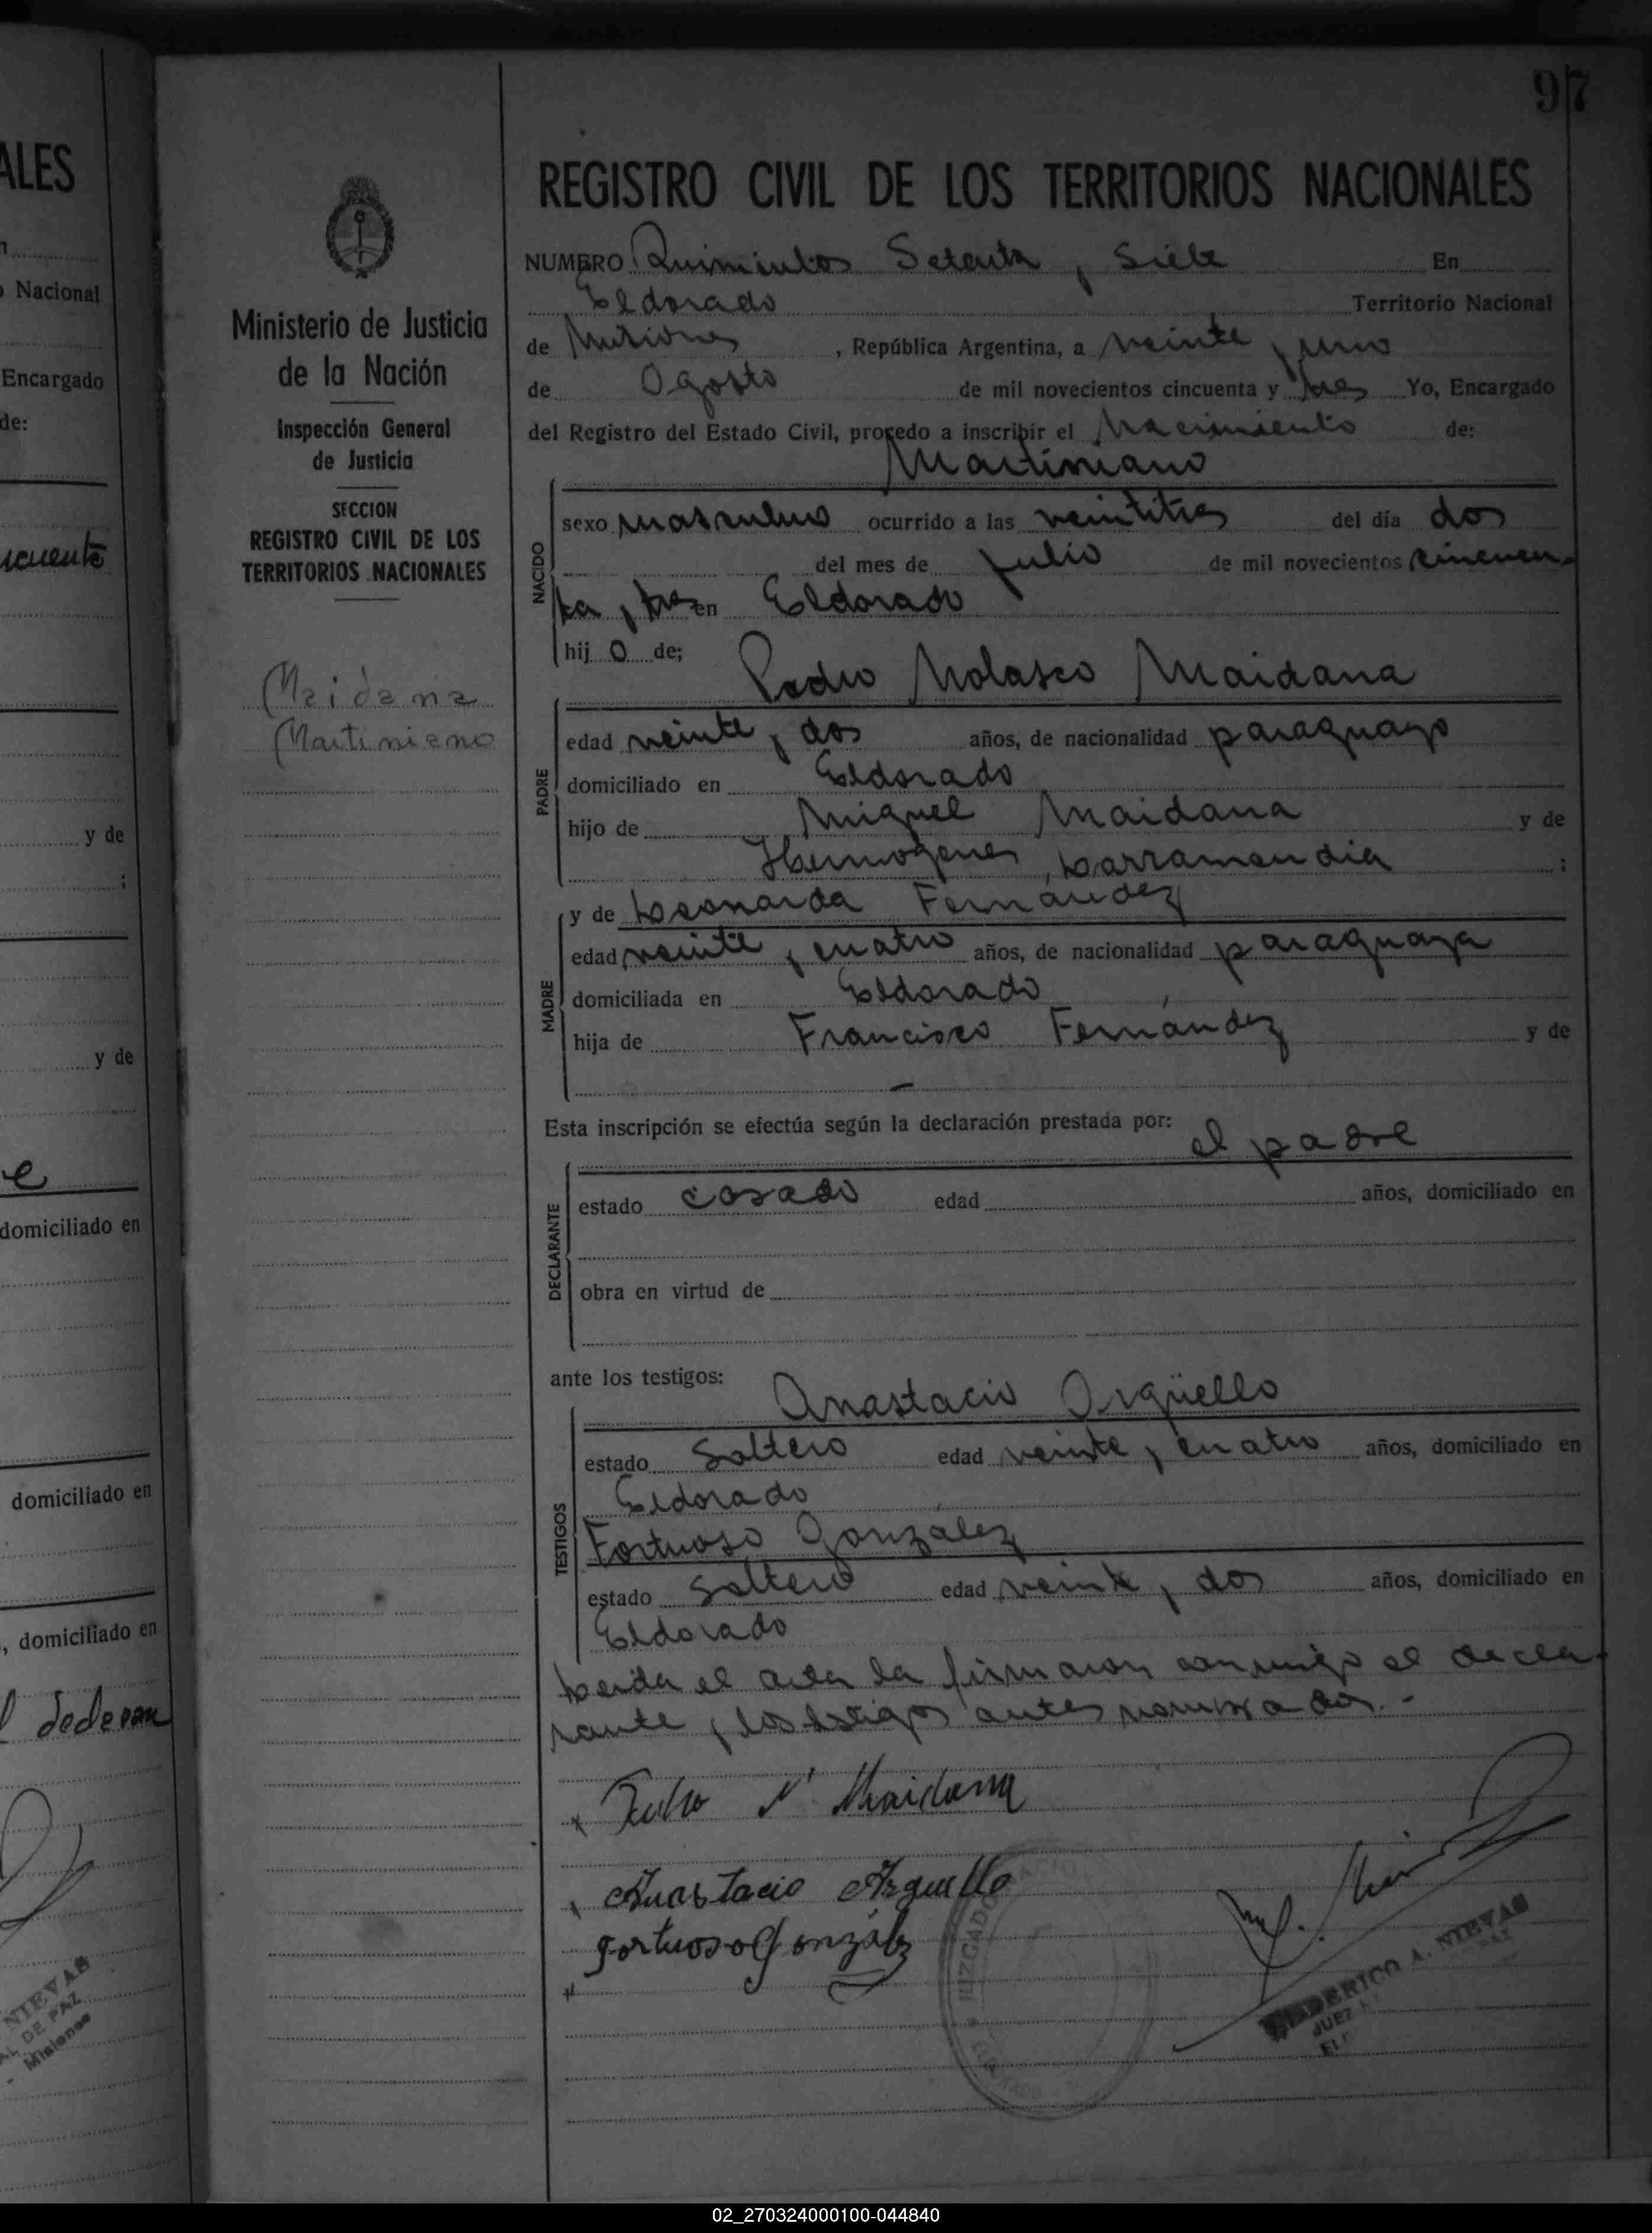 97
REGISTRO CIVIL DE LOS TERRITORIOS NACIONALES
NUMERO Quinientos Setenta y Siete En
Eldorado Territorio Nacional
de Misiones, República Argentina, a veinte y uno
de Agosto de mil novecientos cincuenta y tres Yo, Encargado
del Registro del Estado Civil, procedo a inscribir el Nacimiento de:
Martiniano
NACIDO
sexo masculino ocurrido a las veintitres del día dos
del mes de Julio de mil novecientos cincuen-
ta y tres en Eldorado
hijo de;
Pedro Nolasco Maidana
PADRE
edad veinte y dos años, de nacionalidad paraguayo
domiciliado en Eldorado
hijo de Miguel Maidana y de
Hermogenes Larramendia ;
y de Leonarda Fernández
MADRE
edad veinte y cuatro años, de nacionalidad paraguaya
domiciliada en Eldorado
hija de Francisco Fernández y de
—
Esta inscripción se efectúa según la declaración prestada por: el padre
DECLARANTE
estado casado edad años, domiciliado en
obra en virtud de
ante los testigos: Anastacio Argüello
TESTIGOS
estado Soltero edad veinte y cuatro años, domiciliado en
Eldorado
Fortuoso González
estado Soltero edad veinte y dos años, domiciliado en
Eldorado
Leida el acta la firmaron conmigo el decla-
rante y los testigos antes nombrados.-
Pedro N Maidana
Anastacio Arguello
Fortuoso González
JUZGADO
FEDERICO A. NIEVAS
JUEZ
Ministerio de Justicia
de la Nación
Inspección General
de Justicia
SECCION
REGISTRO CIVIL DE LOS
TERRITORIOS NACIONALES
Maidana
Martiniano
ALES
Nacional
Encargado
de:
y de
;
y de
domiciliado en
domiciliado en
, domiciliado en
NIEVAS
DE PAZ
Misiones
02_270324000100-044840